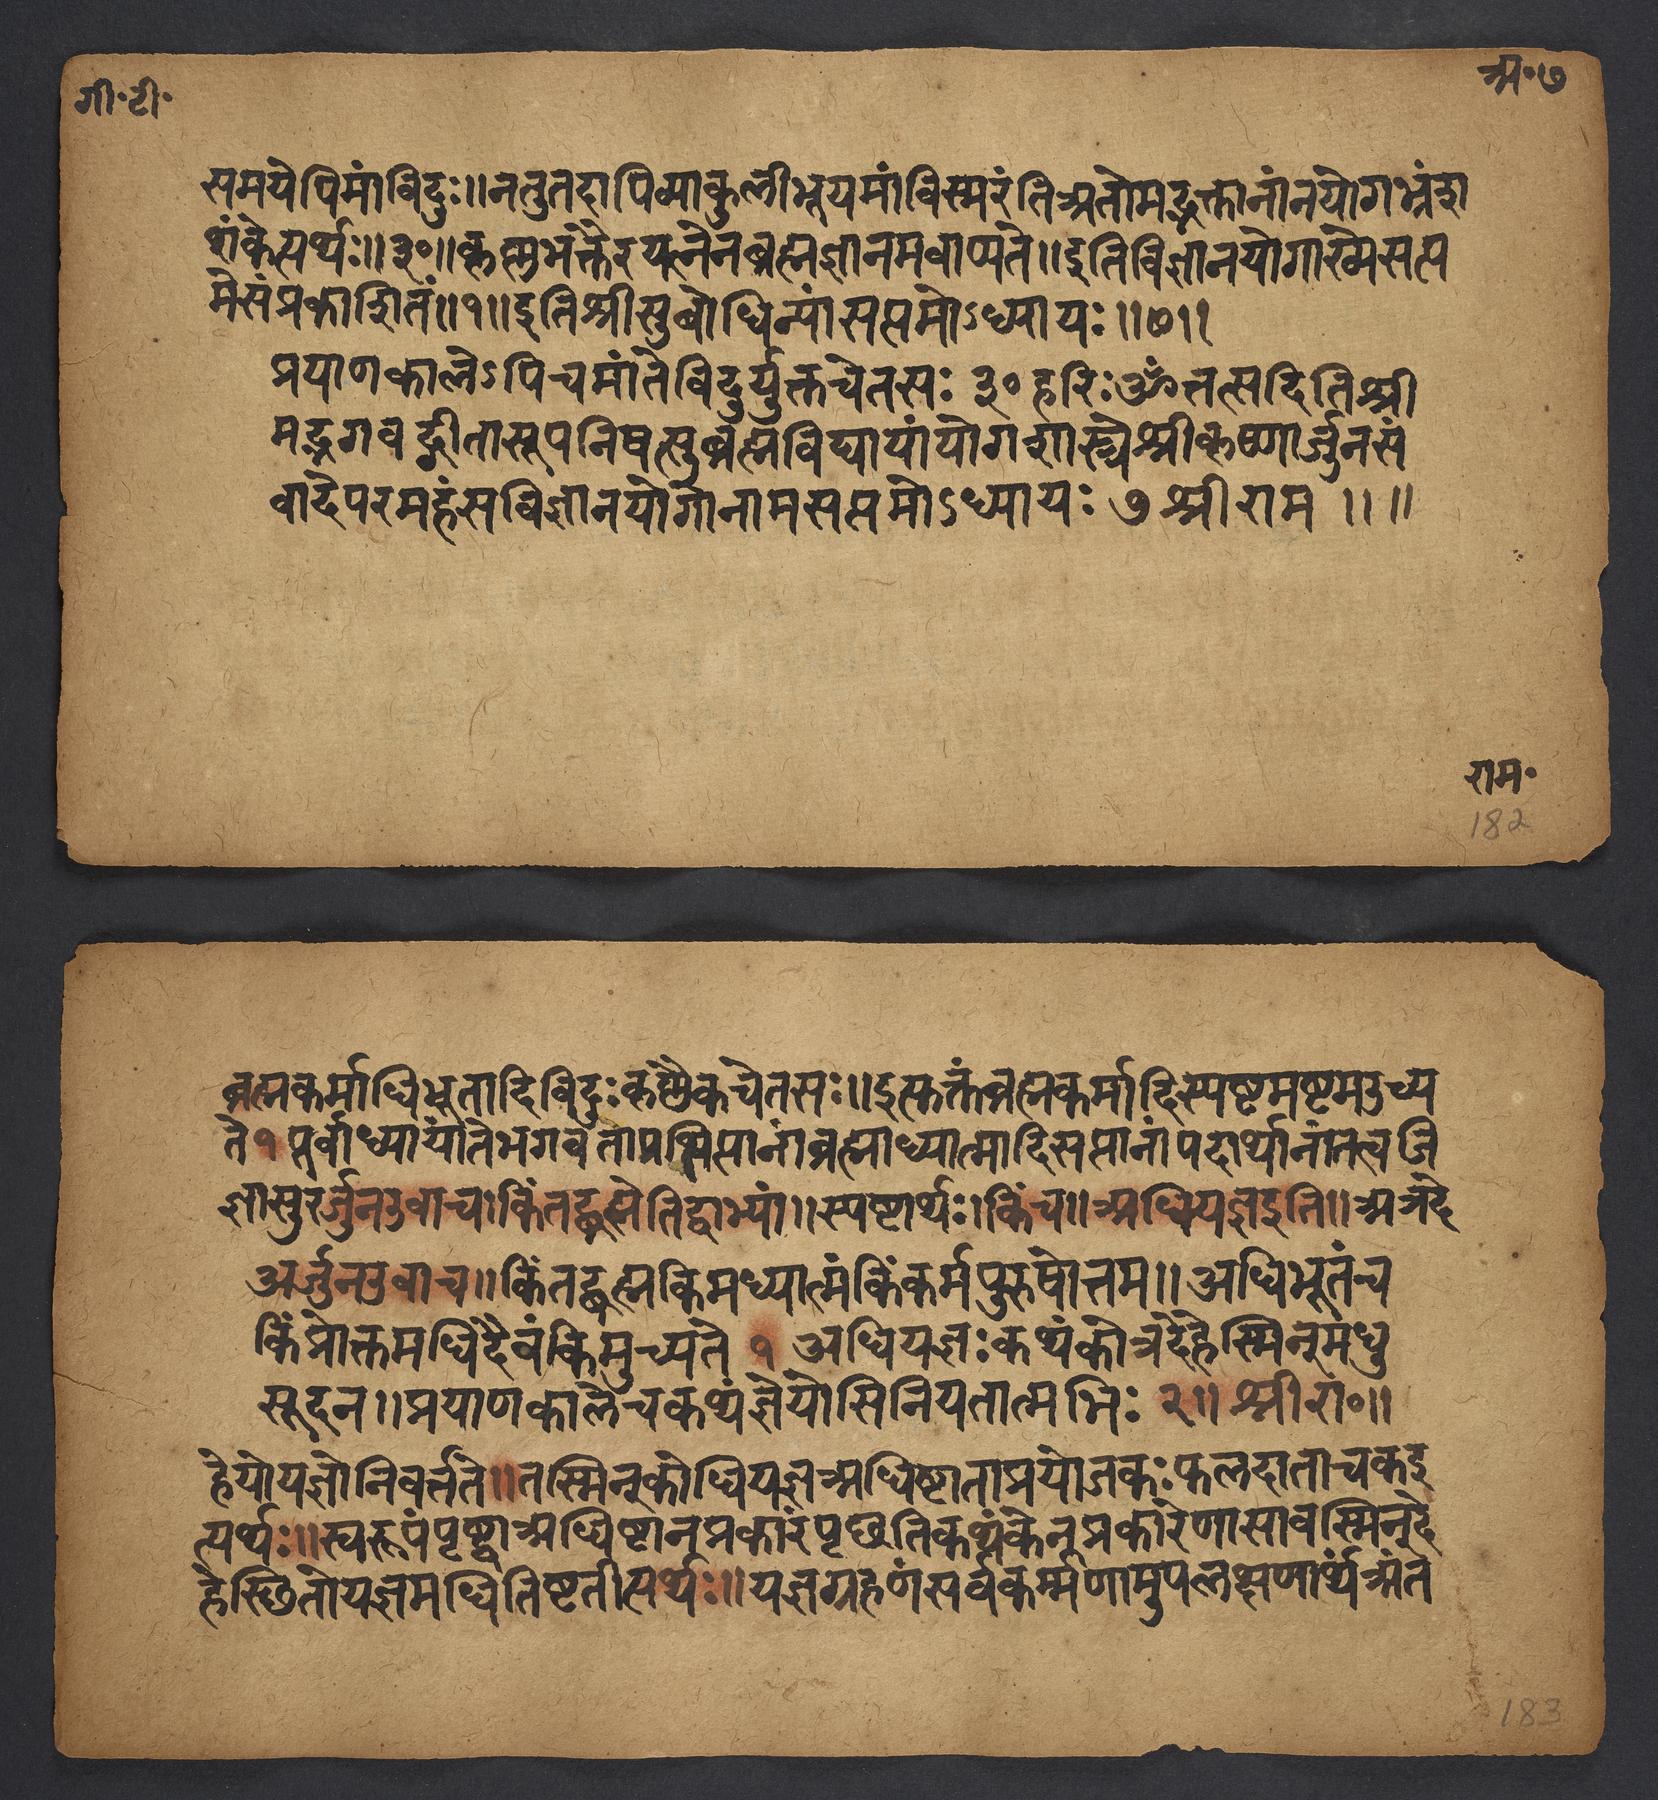 गी॰टी॰
अ॰७
समयेपिमांविदुः॥नतुतदापिव्याकुलीभूयमांविस्मरंतिअतोमद्भक्तानांनयोगभ्रंशा
शंकेत्यर्थः॥३०॥कृष्णभक्तैरयत्नेनब्रह्मज्ञानमवाप्यते॥इतिविज्ञानयोगारव्येसप्त
मेसंप्रकाशितं॥१॥इतिश्रीसुबोधिन्यांसप्तमोऽध्यायः॥॥७॥
प्रयाणकालेऽपिचमांतेविदुर्युक्तचेतसः ३० हरिःॐतत्सदितिश्री
मद्भगवद्गीतासूपनिषत्सुब्रह्मविद्यायांयोगशास्त्रेश्रीकृष्णार्जुनसं
वादेपरमहंसविज्ञानयोगोनामसप्तमोऽध्यायः ७ श्रीराम ॥ ॥
राम॰
182
ब्रह्मकर्माधिभूतादिविदुःकृष्णैकचेतसः॥इत्युक्तंब्रह्मकर्मादिस्पष्टमष्टमउच्य
ते १ पूर्वाध्यायांतेभगवताप्रक्षिप्तानांब्रह्माध्यात्मादिसप्तानांपदार्थानांतत्वजि
ज्ञासुरर्जुनउवाच।किंतद्ब्रह्मेतिद्वाभ्यां॥स्पष्टार्थः।किंच॥अधियज्ञइति॥अत्रदे
अर्जुनउवाच॥किंतद्ब्रह्मकिमध्यात्मंकिंकर्मपुरुषोत्तम॥अधिभूतंच
किंप्रोक्तमधिदैवंकिमुच्यते १ अधियज्ञःकथंकोत्रदेहेस्मिन्मधु
सूदन॥प्रयाणकालेचकथंज्ञेयोसिनियतात्मभिः २॥ श्रीरां॰॥
हेयोयज्ञोनिवर्त्तते॥तस्मिन्कोधियज्ञअधिष्टाताप्रयोजकःफलदाताचकइ
त्यर्थः॥स्वरूपंपृष्ट्वाअधिष्टानप्रकारंपृछतिकथंकेनप्रकारेणासावस्मिन्दे
हेस्छितोयज्ञमधितिष्टतीत्यर्थः॥यज्ञग्रहणंसर्वकर्म्मणामुपलक्षणार्थंअंत
183